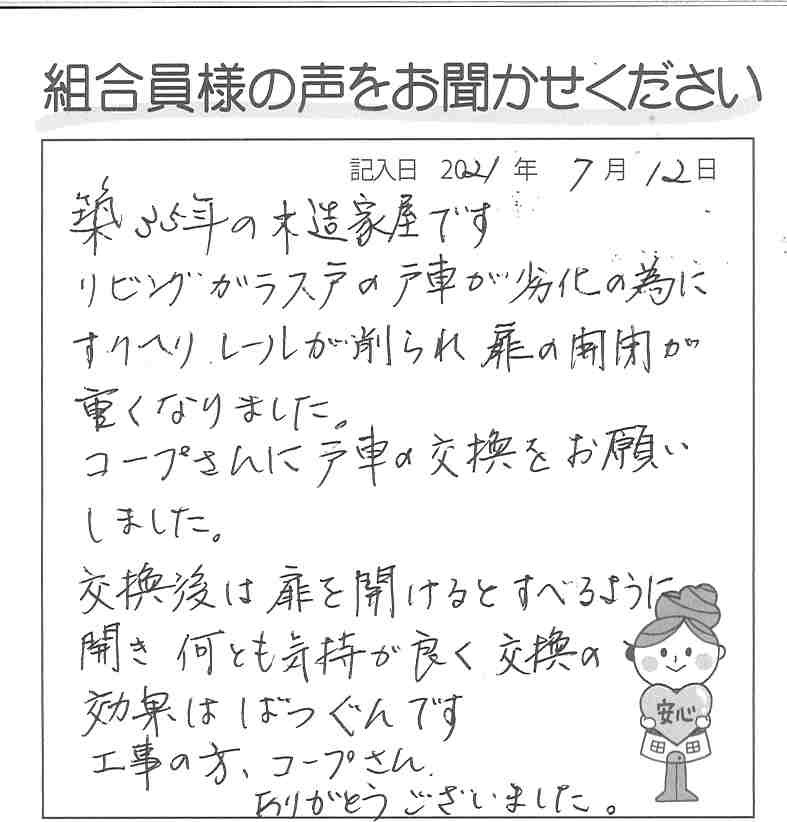 組合員様の声をお聞かせください
記入日 2021年 7月 12日
築35年の木造家屋です
リビングガラス戸の戸車が劣化の為に
すりへり レールが削られ 扉の開閉が
重くなりました。
コープさんに戸車の交換をお願い
しました。
交換後は扉を開けるとすべるように
開き 何とも気持が良く 交換の
効果はばつぐんです
工事の方、コープさん
ありがとうございました。
安心